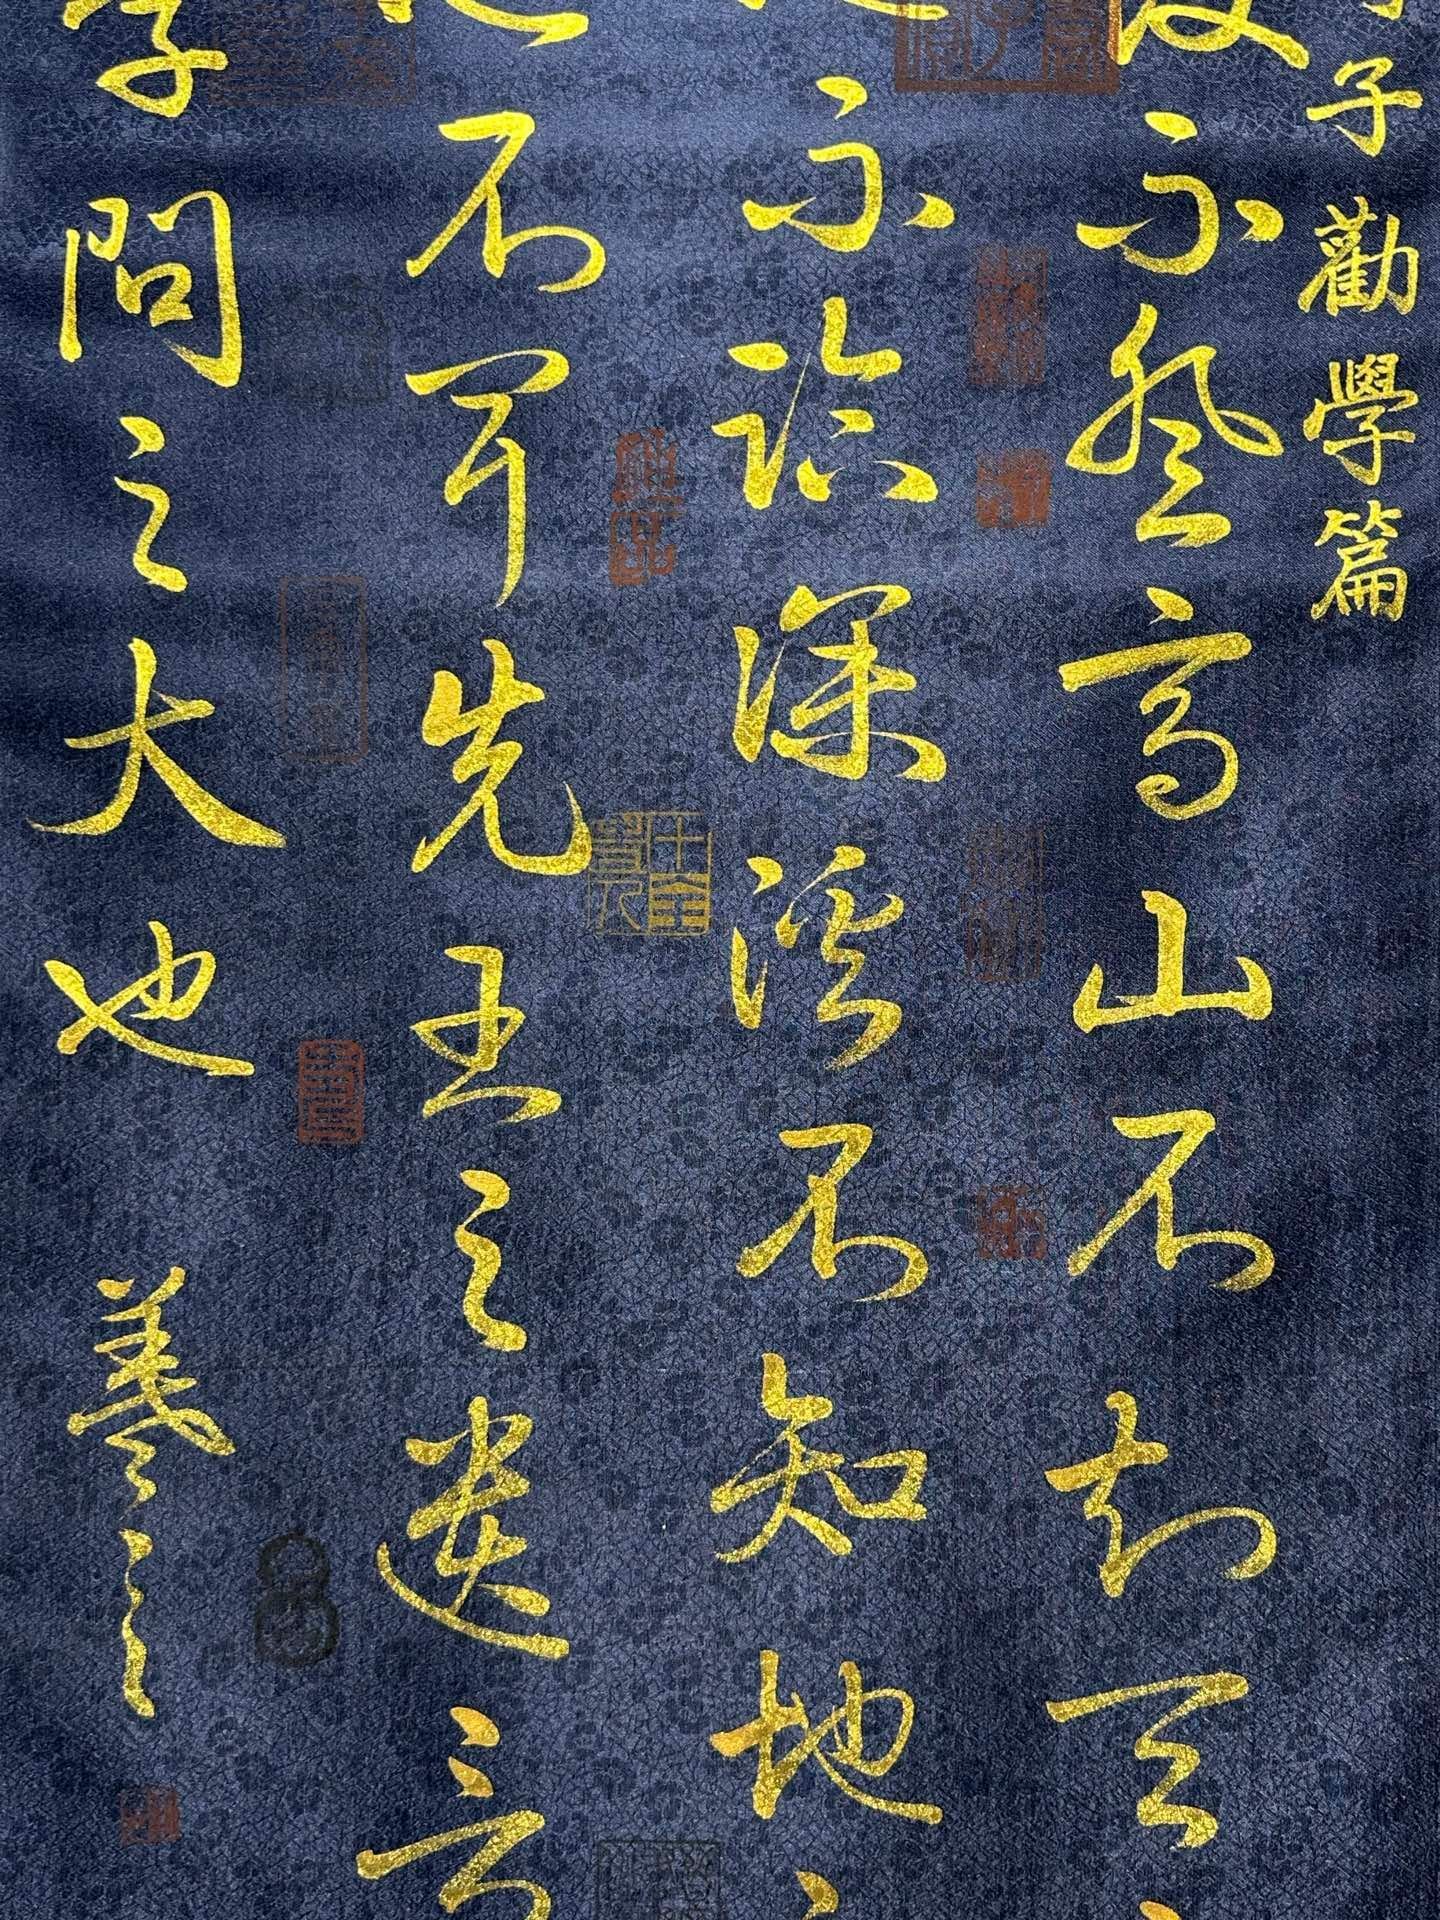 子勸學篇
不登高山不知天
不臨深溪不知地
不聞先王之遺言
學問之大也 羲之